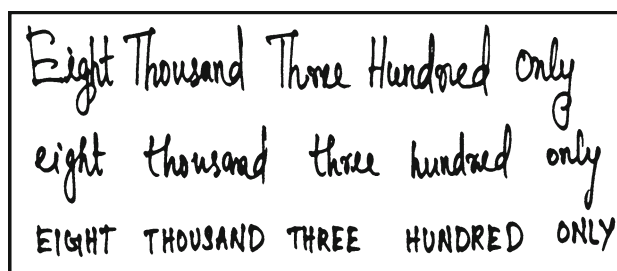 Eight Thousand Three Hundred Only
eight thousand three hundred only
EIGHT THOUSAND THREE HUNDRED ONLY